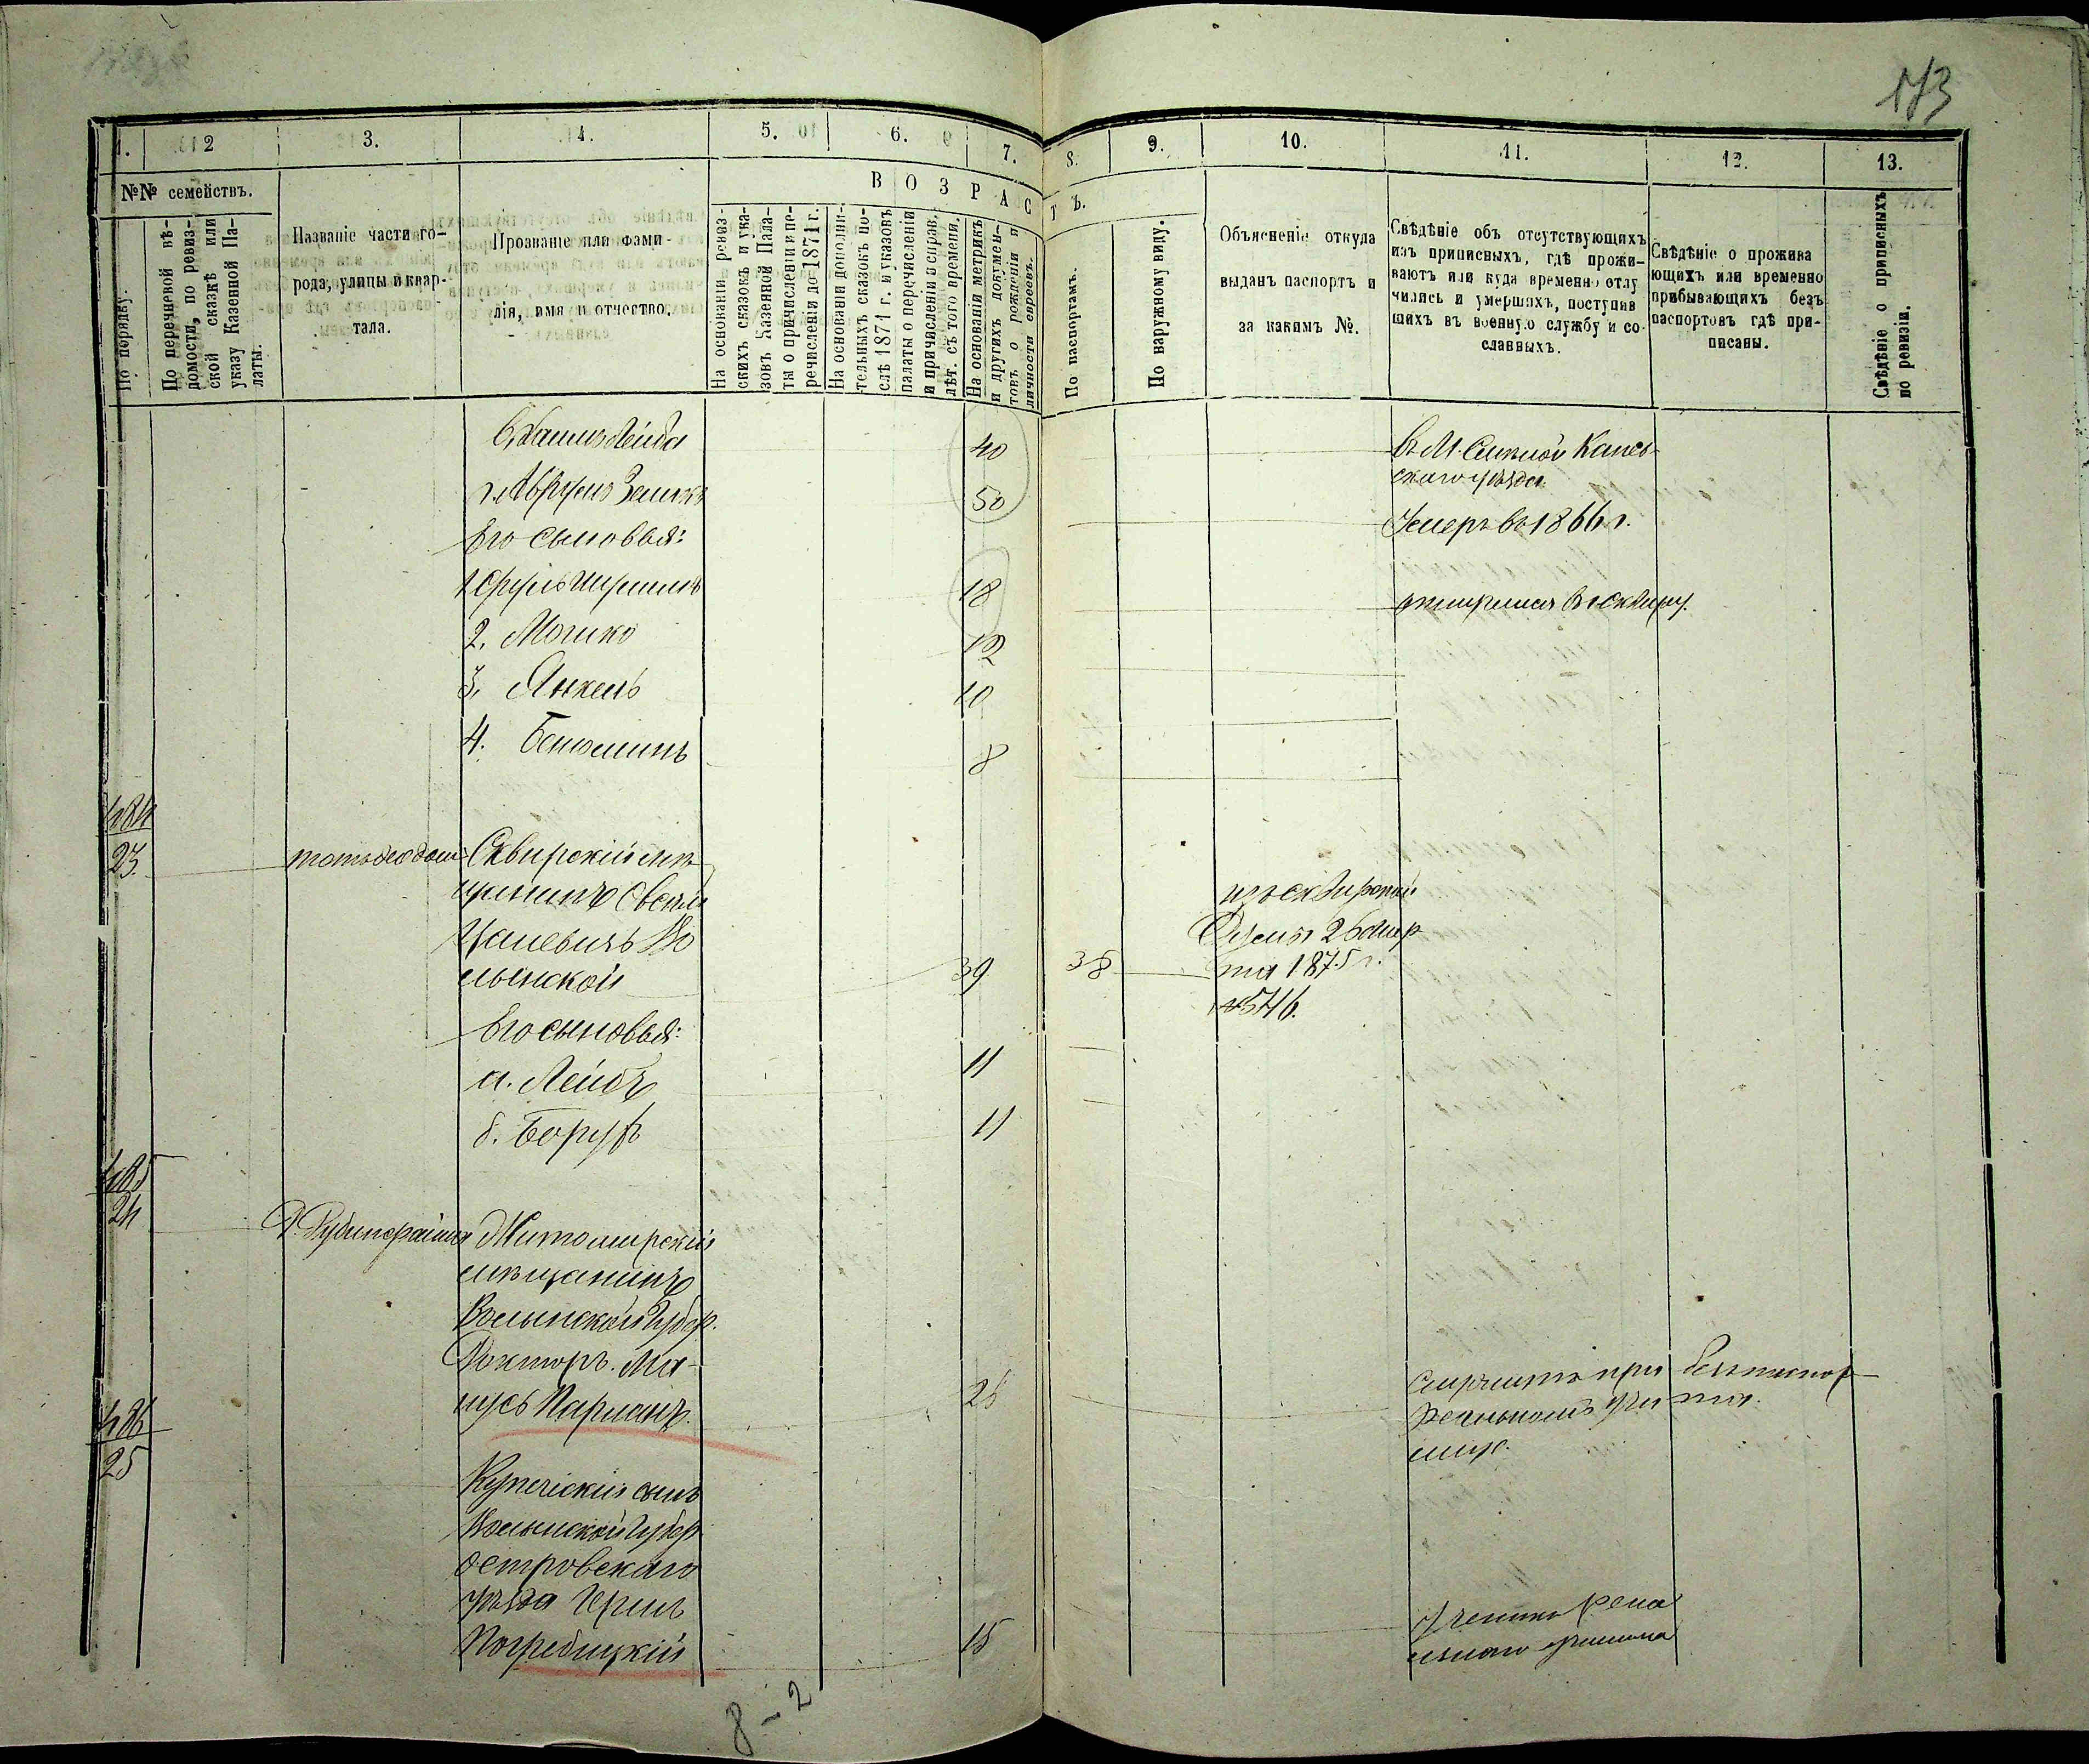 173
1.
2
3.
4.
5.
6.
7.
8.
9.
10.
11.
12.
13.
№№ семействъ.
По порядку.
По перечневой вѣ-
домости, по ревиз-
ской сказкѣ или
указу Казенной Па-
латы.
Названіе части го-
рода, улицы и квар-
тала.
Прозваніе или фами-
лія, имя и отчество.
ВОЗРАСТЪ.
На основаніи ревиз-
скихъ сказокъ и ука-
зовъ Казенной Пала-
ты о причисленіи и пе-
речисленіи до 1871 г.
На основаніи дополни-
тельныхъ сказокъ по-
слѣ 1871 г. и указовъ
палаты о перечисленіи
и причисленіи и справ.
лѣт. съ того времени.
На основаніи метрикъ
и другихъ докумен-
товъ о рожденіи и
личности евреевъ.
По паспортамъ.
По наружному виду.
Объясненіе откуда
выданъ паспортъ и
за какимъ №.
Свѣдѣніе объ отсутствующихъ
изъ приписныхъ, гдѣ прожи-
ваютъ или куда временно отлу
чились и умершихъ, поступив
шихъ въ военную службу и со-
сланныхъ.
Свѣдѣніе о прожива
ющихъ или временно
прибывающихъ безъ
паспортовъ гдѣ при-
писаны.
Свѣдѣніе о приписныхъ
по ревизіи.
Лейба
40
в. М. Каневъ-
скаго уѣзда
г. Аврумъ
50
Умеръ въ 1866 г.
Его сыновья:
1. Сруль
18
2. Мошко
12
3. Янкель
10
4. Беніоминъ
8
484
23.
тотъ же домъ
Сквирскій мѣ-
щанинъ
Во
лынской
39
38
изъ Сквирской
Думы 26 мар
та 1875 г.
№ 546.
Его сыновья:
а. Лейбъ
11
б. Борухъ
11
485
24
Житомирскій
мѣщанинъ
Волынской Губер.
Докторъ. Ма-
нусъ Парманъ.
26
при
реальномъ учи
лищѣ.
безъ паспор
та.
486
25
Купеческій сынъ
Волынской Губер
Островскаго
уѣзда Гершъ
Погребицкій
15
Ученикъ реа
льнаго училища
8-2